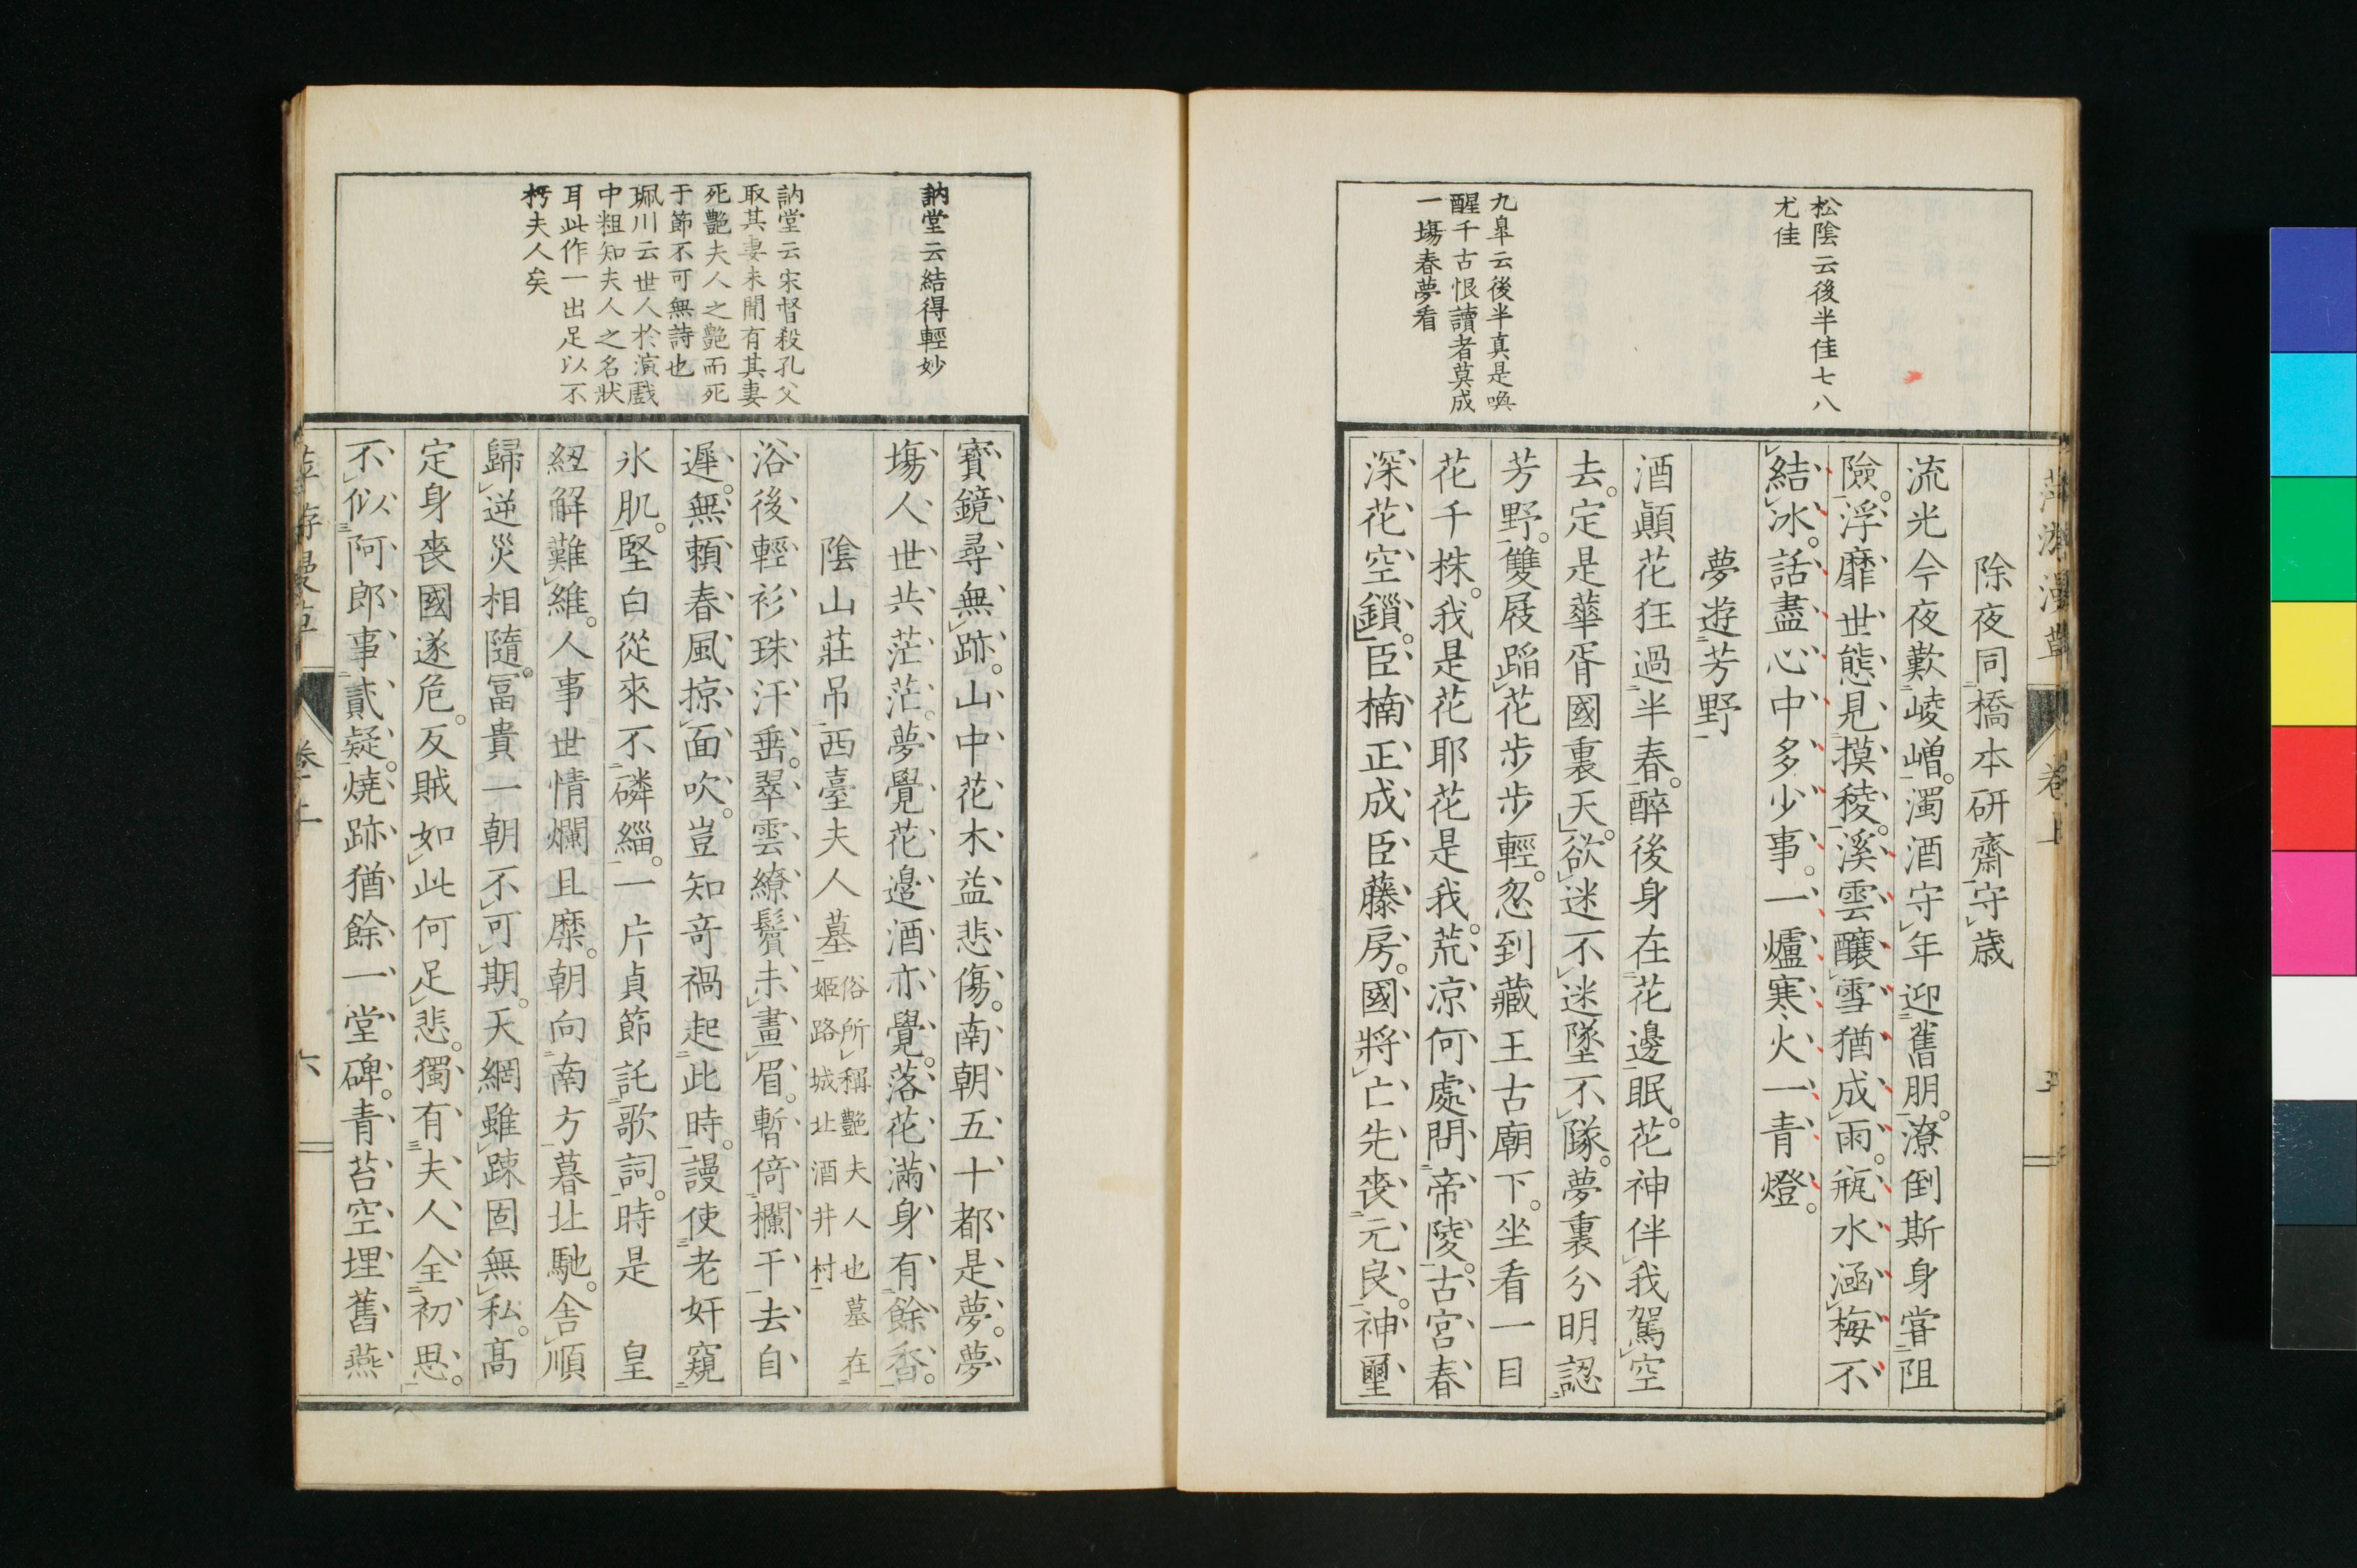 松陰云後半佳七八
尤佳
九皐云後半真是喚
醒千古恨讀者莫成
一塲春夢看
萍游漫草
卷上
除夜同橋本研齋守歳
流光今夜歎崚嶒濁酒守年迎舊朋潦倒斯身甞阻
險浮靡世態見摸稜溪雲釀雪猶成雨瓶水涵梅不
結冰話盡心中多少事一爐寒火一青燈
夢遊芳野
酒顛花狂過半春醉後身在花邊眠花神伴我駕空
去定是華胥國裏天欲迷不迷墜不隊夢裏分明認
芳野雙屐蹈花步步輕忽到藏王古廟下坐看一目
花千株我是花耶花是我荒凉何處問帝陵古宮春
深花空鎻臣楠正成臣藤房國將亡先喪元良神璽
訥堂云結得輕妙
訥堂云宋督殺孔父
取其妻未聞有其妻
死艷夫人之艷而死
于節不可無詩也
珮川云世人於演戲
中粗知夫人之名狀
耳此作一出足以不
朽夫人矣
寳鏡尋無跡山中花木益悲傷南朝五十都是夢夢
塲人世共茫茫夢覺花邉酒亦覺落花滿身有餘香
陰山莊吊西臺夫人墓
俗所稱艷夫人也墓在
姬路城北酒井村
浴後輕衫珠汗垂翠雲繚鬢未畫眉暫倚欄干去自
遲無頼春風掠面吹豈知竒禍起此時謾使老奸窺
氷肌堅白從來不磷緇一片貞節託歌詞時是　皇
紐解難維人事世情爛且糜朝向南方暮北馳舎順
歸逆災相隨冨貴一朝不可期天網雖踈固無私髙
定身喪國遂危反賊如此何足悲獨有夫人全初思
不似阿郎事貳疑燒跡猶餘一堂碑青苔空埋舊燕
卷上
六